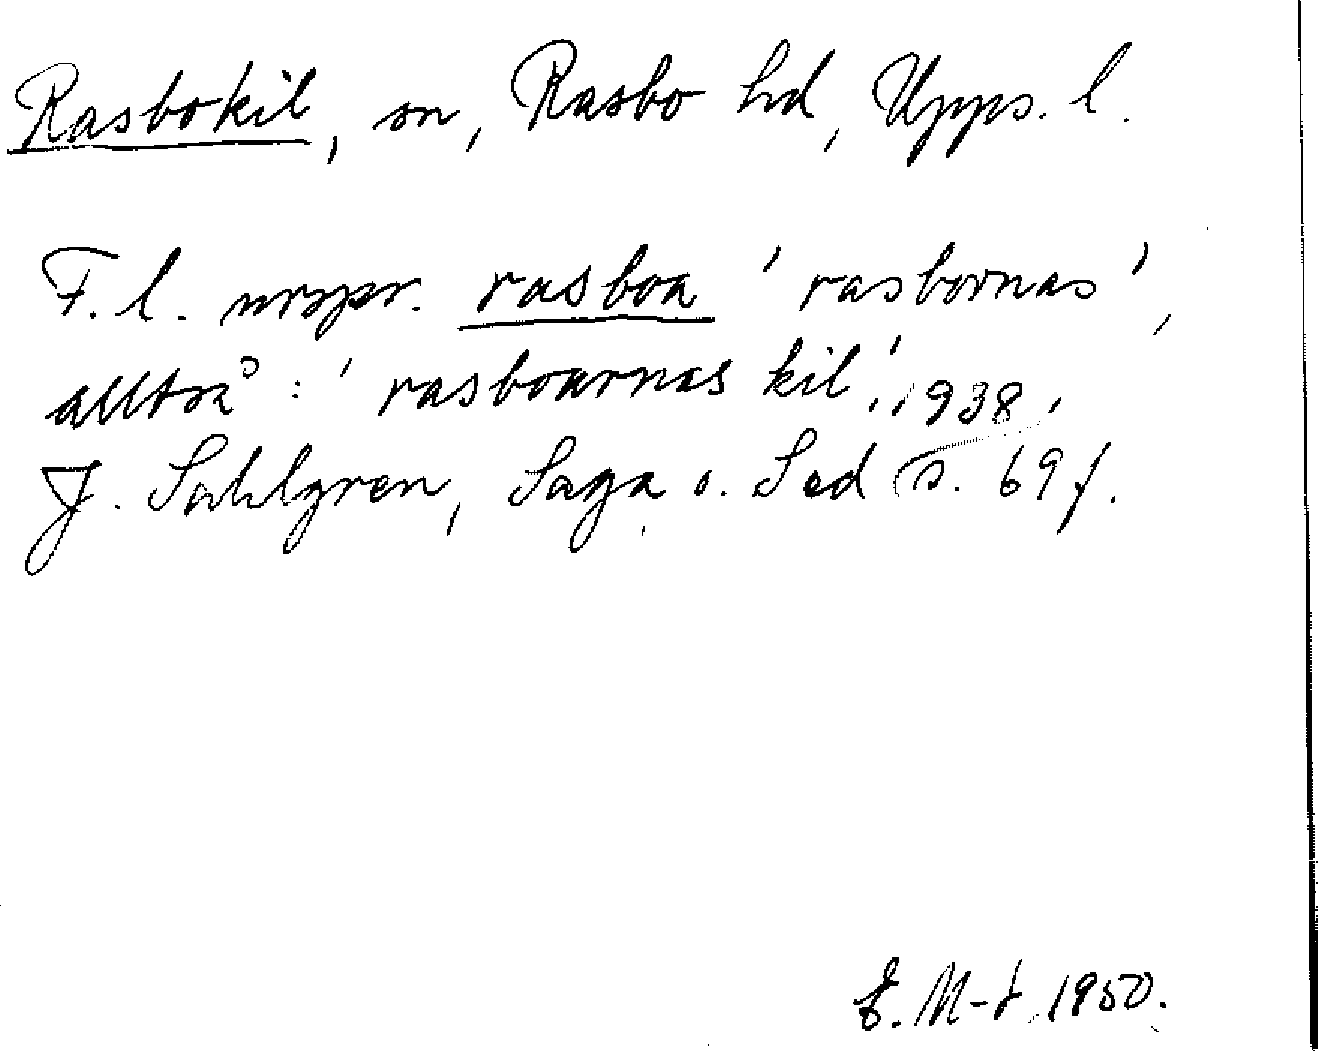 Rasbokil, sn, Rasbo hd, Upps. l.
F. l. urspr. rasboa 'rasbornas',
alltså: 'rasboarnas kil', 1938,
J. Sahlgren, Saga o. Sed s. 69 f.
E. M-t 1950.